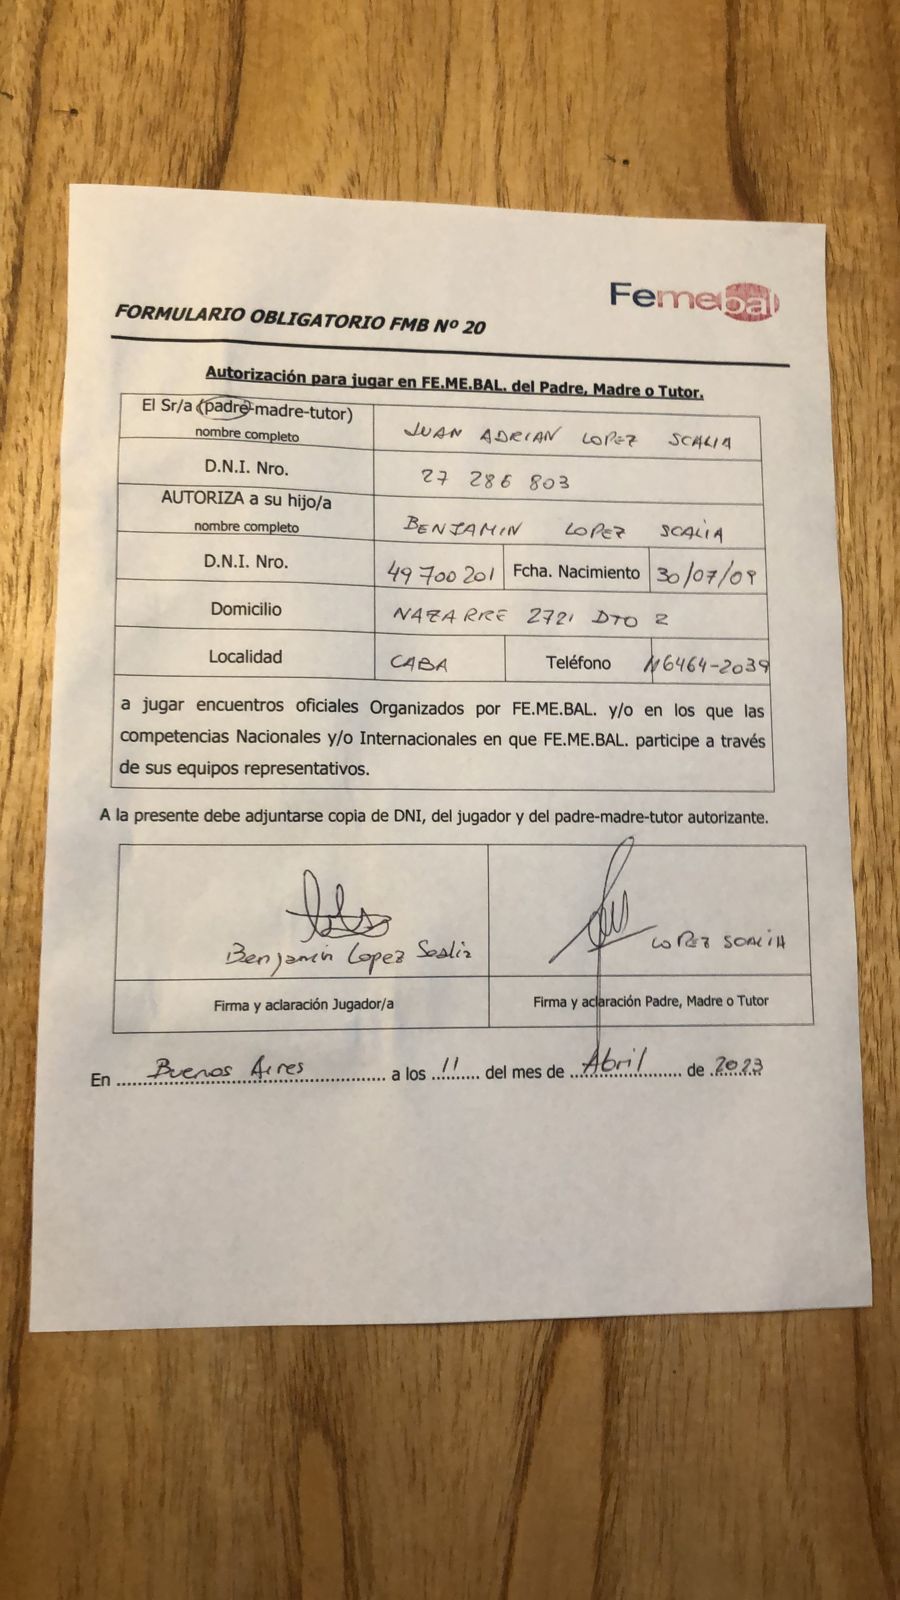 Femebal
FORMULARIO OBLIGATORIO FMB Nº 20
Autorización para jugar en FE.ME.BAL. del Padre, Madre o Tutor.
El Sr/a (padre-madre-tutor)
nombre completo
JUAN ADRIAN LOPEZ SCALIA
D.N.I. Nro.
27 286 803
AUTORIZA a su hijo/a
nombre completo
BENJAMIN LOPEZ SCALIA
D.N.I. Nro.
49 700 201
Fcha. Nacimiento
30/07/09
Domicilio
NAZARRE 2721 DTO 2
Localidad
CABA
Teléfono
116464-2039
a jugar encuentros oficiales Organizados por FE.ME.BAL. y/o en los que las
competencias Nacionales y/o Internacionales en que FE.ME.BAL. participe a través
de sus equipos representativos.
A la presente debe adjuntarse copia de DNI, del jugador y del padre-madre-tutor autorizante.
Benjamin Lopez Scalia
LOPEZ SCALIA
Firma y aclaración Jugador/a
Firma y aclaración Padre, Madre o Tutor
En Buenos Aires a los 11 del mes de Abril de 2023